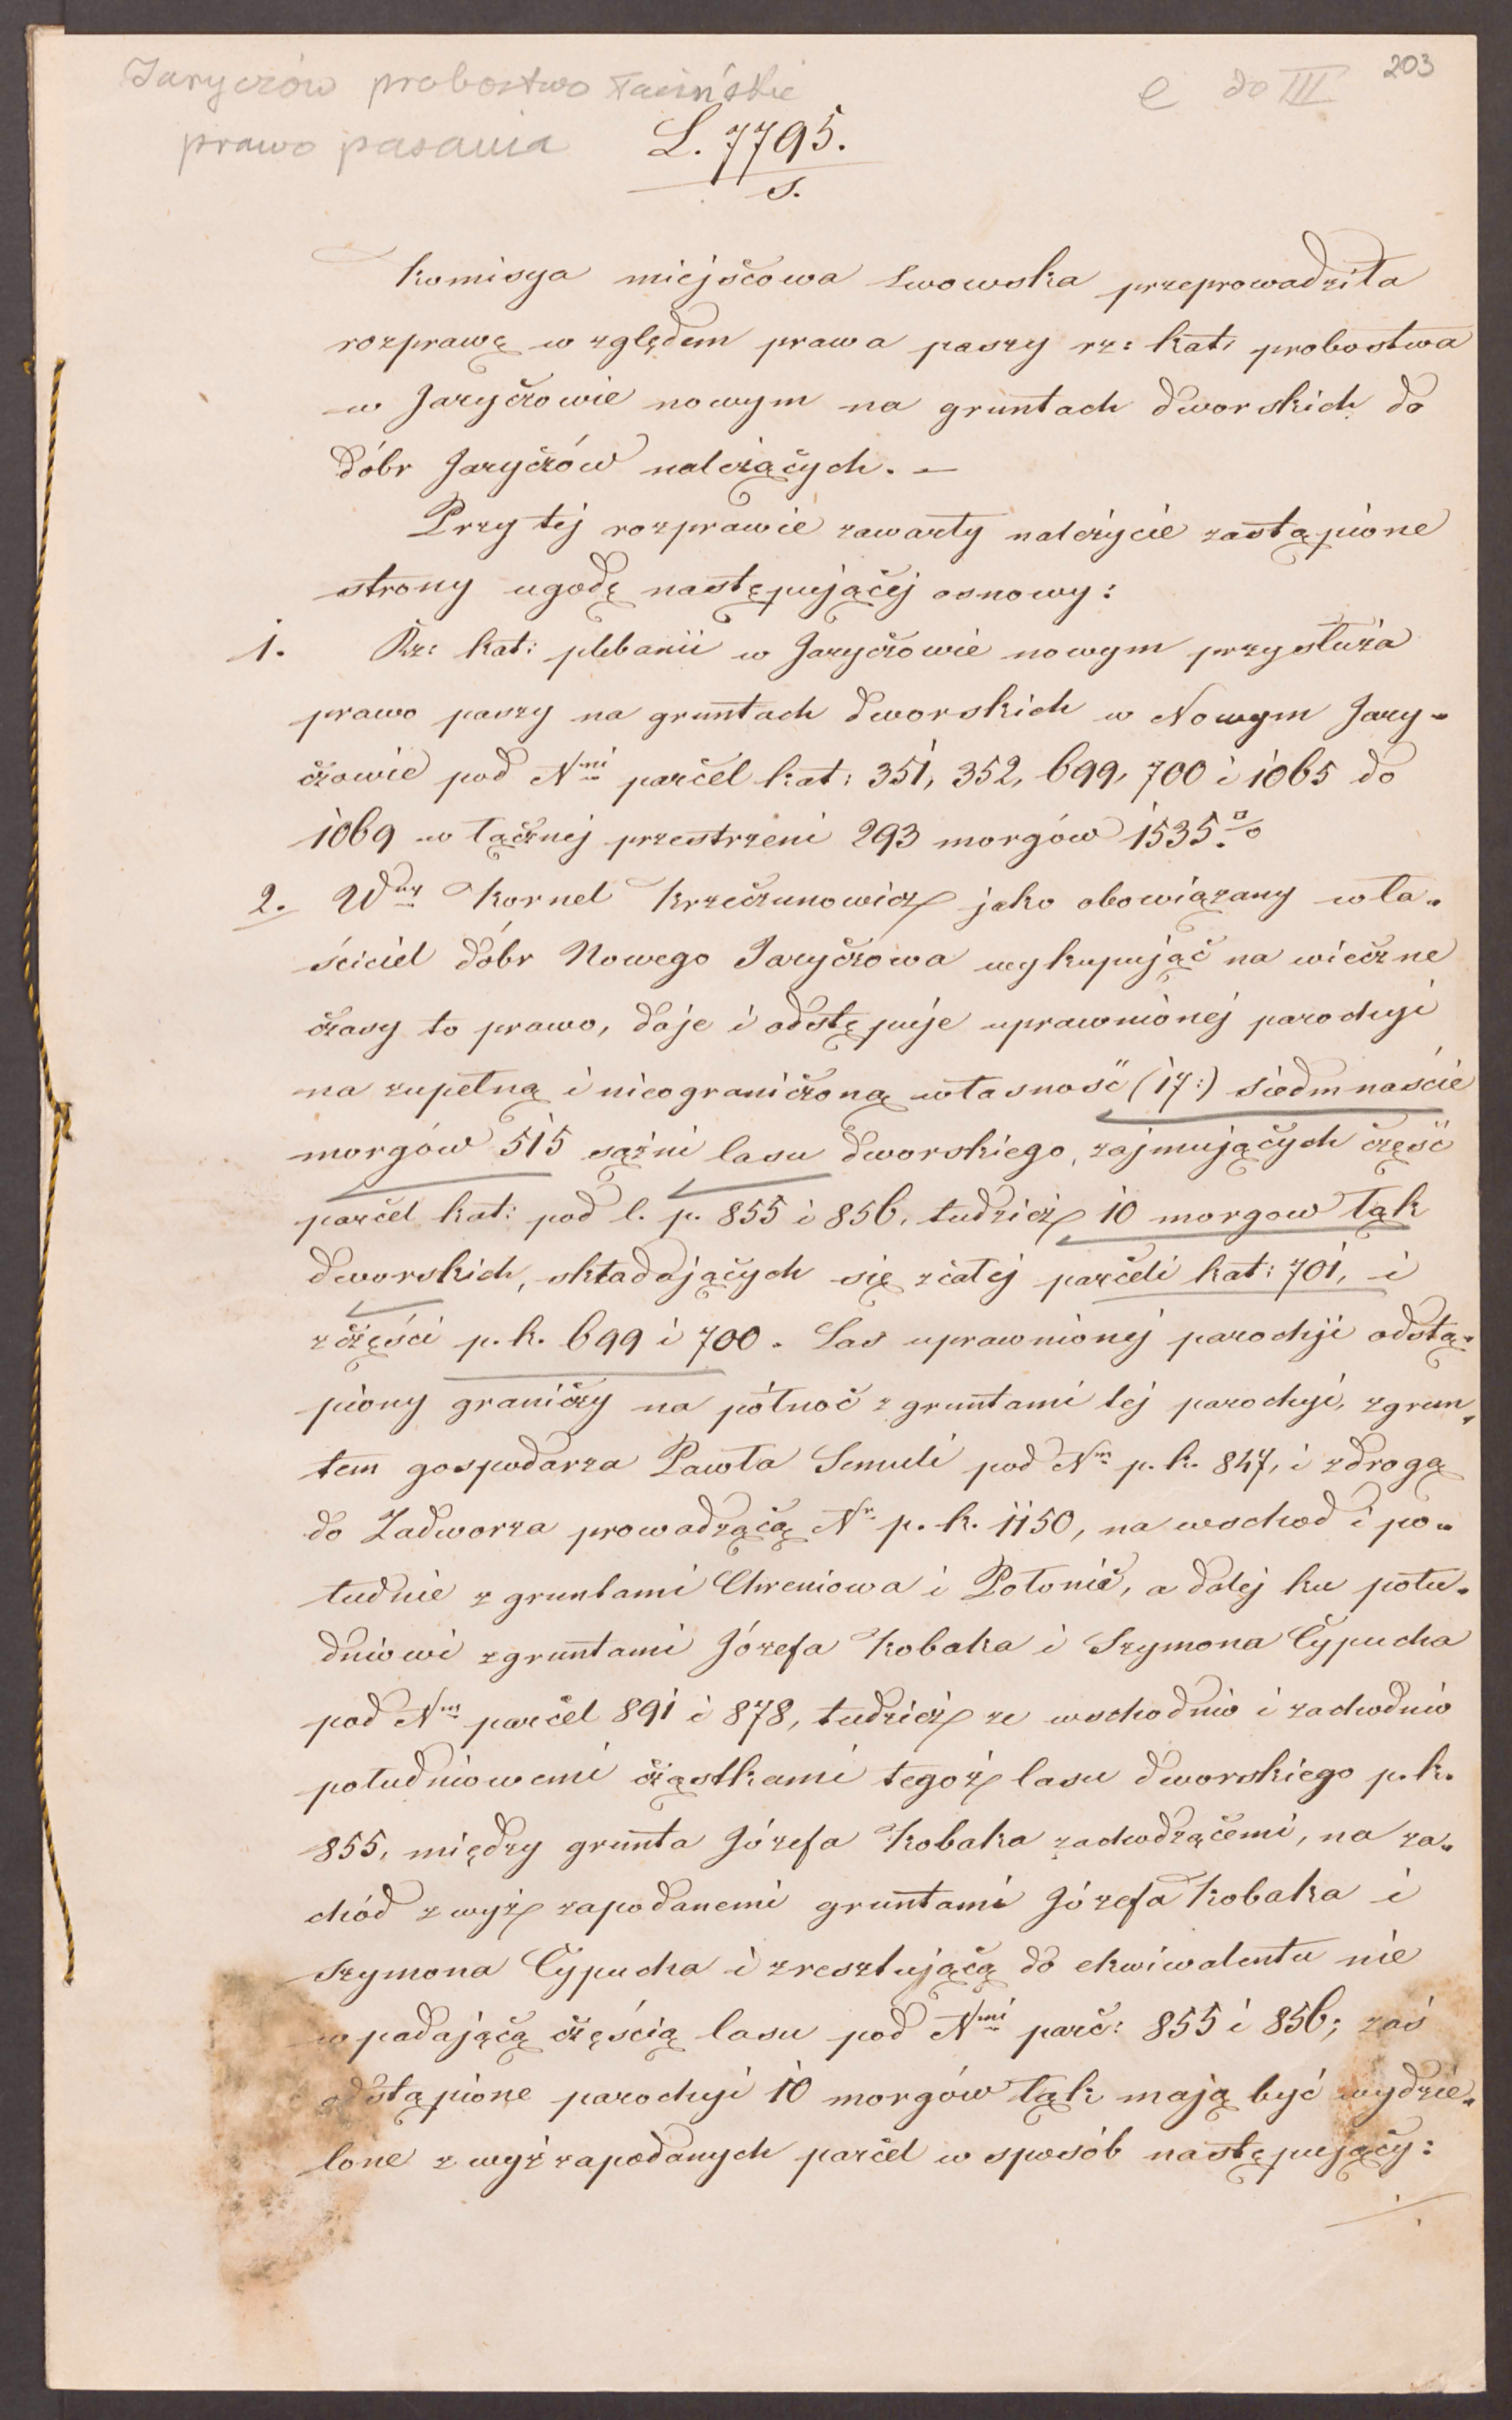 203
Jaryczów probostwo łacińskie
e do III
prawo pasania
L. 7795.
s.
Komisya miejscowa Lwowska przeprowadziła
rozprawę względem prawa paszy rz: kat: probostwa
w Jaryczowie nowym na gruntach dworskich do
dóbr Jaryczów należących. —
Przy tej rozprawie zawarły należycie zastąpione
strony ugodę następującej osnowy:
1. Rz: kat: plebanii w Jaryczowie nowym przysłuża
prawo paszy na gruntach dworskich w Nowym Jary-
czowie pod Nmi parcel kat: 351, 352, 699, 700 i 1065 do
1069 w łącznej przestrzeni 293 morgów 1535
2. Wny Kornel Krzeczunowicz jako obowiązany wła-
ściciel dóbr Nowego Jaryczowa wykupując na wieczne
czasy to prawo, daje i odstępuje uprawnionej parochyi
na zupełną i nieograniczoną własność (17:) siedmnaście
morgów 515 sążni lasu dworskiego, zajmujących część
parcel kat: pod l. p. 855 i 856, tudzież 10 morgow łąk
dworskich, składających się z całej parceli kat: 701, i
z części p. k. 699 i 700. Las uprawnionej parochji odstą-
piony graniczy na północ z gruntami tej parochyi, z grun-
tem gospodarza Pawła Semuli pod Nm p. k. 847, i z drogą
do Zadworza prowadzącą Nr p. k. 1150, na wschod i po-
łudnie z gruntami Chreniowa i Połonic, a dalej ku połu-
dniowi z gruntami Józefa Kobaka i Szymona Cypucha
pod Nm parcel 891 i 878, tudzież ze wschodnio i zachodnio
południowemi cząstkami tegoż lasu dworskiego p. k.
855, między grunta Józefa Kobaka zachodzącemi, na za-
chód z wyż zapodanemi gruntami Józefa Kobaka i
Szymona Cypucha i z resztującą do ekwiwalentu nie
wpadającą częścią lasu pod Nmi parc: 855 i 856; zaś
odstąpione parochyi 10 morgów łąk mają być wydzie-
lone z wyż zapodanych parcel w sposób następujący: